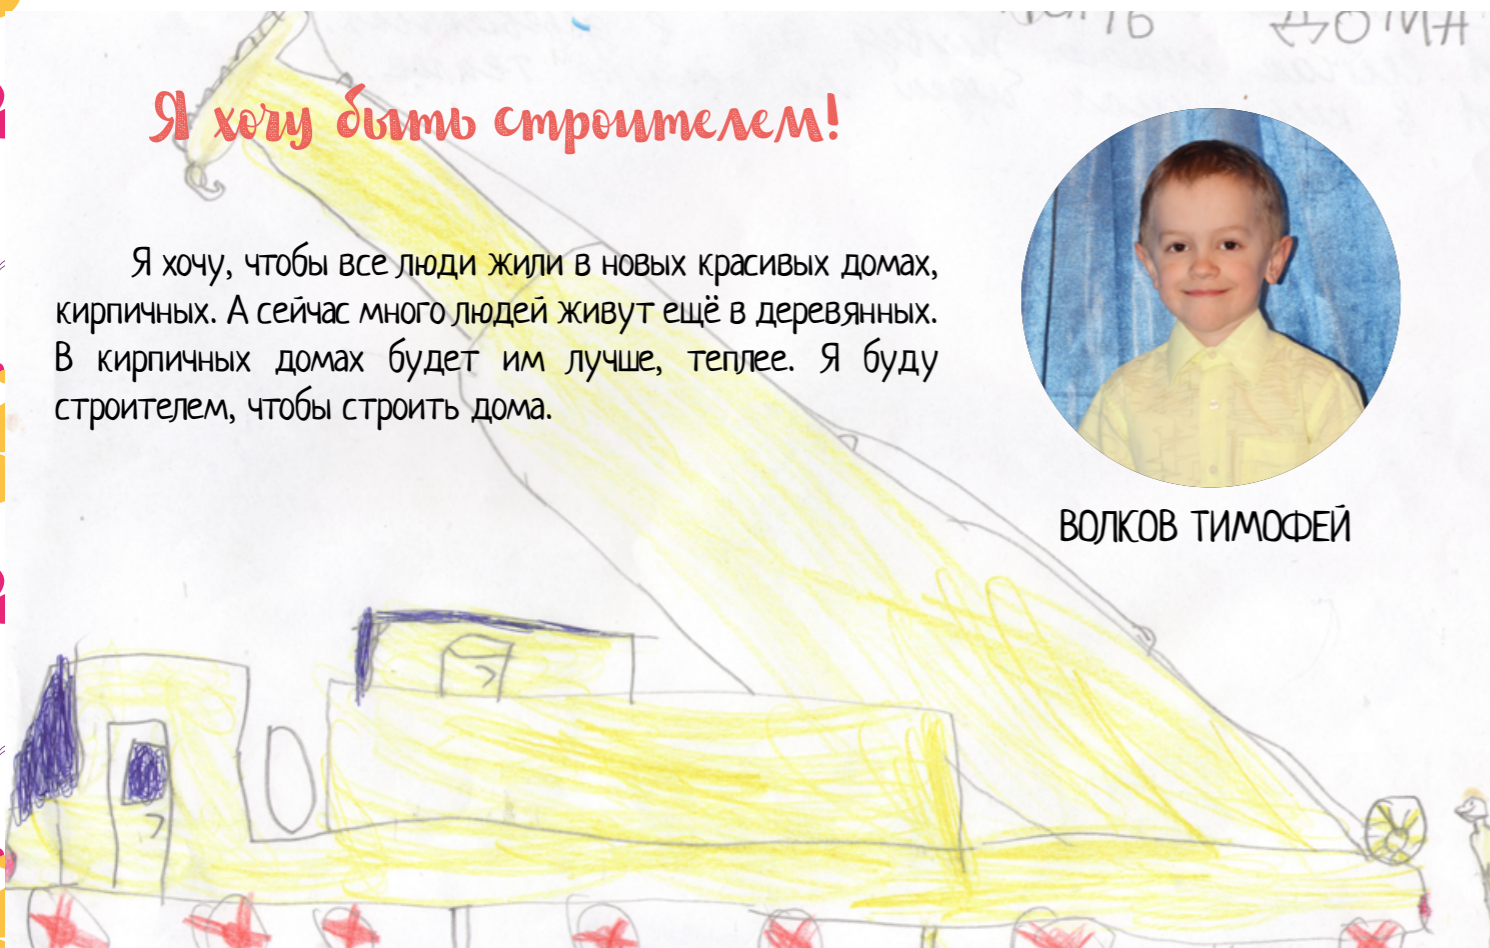 ДОМА
Я хочу быть строителем!
Я хочу, чтобы все люди жили в новых красивых домах,
кирпичных. А сейчас много людей живут ещё в деревянных.
В кирпичных домах будет им лучше, теплее. Я буду
строителем, чтобы строить дома.
ВОЛКОВ ТИМОФЕЙ